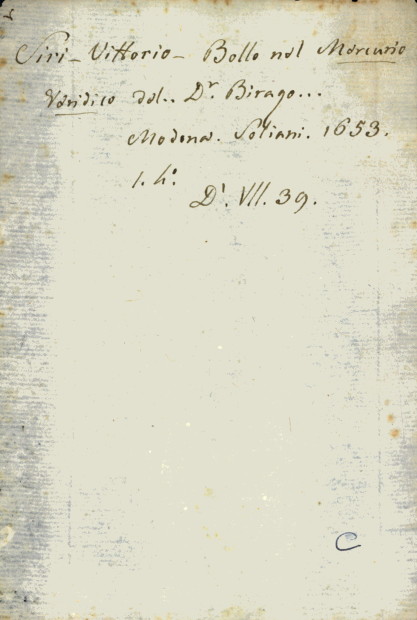 Siri - Vittorio - Bollo nel Mercurio
Veridico del.. Dr. Birago...
Modena. Soliani. 1653.
1. 4°.
D'. VII. 39.
C